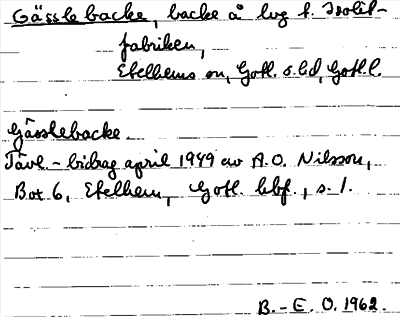 Gässlebacke, backe å lvg t. Isolit-
fabriken,
Etelhems sn, Gotl. s. hd, Gotl. l.
Gässlebacke.
Tävl.-bidrag april 1949 av A.O. Nilsson,
Box 6, Etelhem, Gotl. hbf., s. 1.
B.-E. O. 1962.